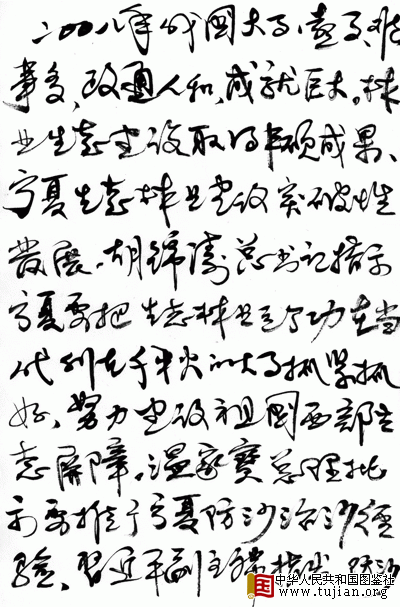 二〇〇八年我國大事、喜事、难
事多,政通人和,成就巨大。林
业生态建设取得丰硕成果、
宁夏生态林业建设突破性
發展。胡锦涛总书记指示
宁夏要把生态林业 功在当
代利在千秋的大事抓紧抓
好、努力建设祖國西部生
态屏障。温家寶总理批
示要推广宁夏防沙治沙经
验、習近平副主席指出
中华人民共和国图鉴社
www.tujian.org